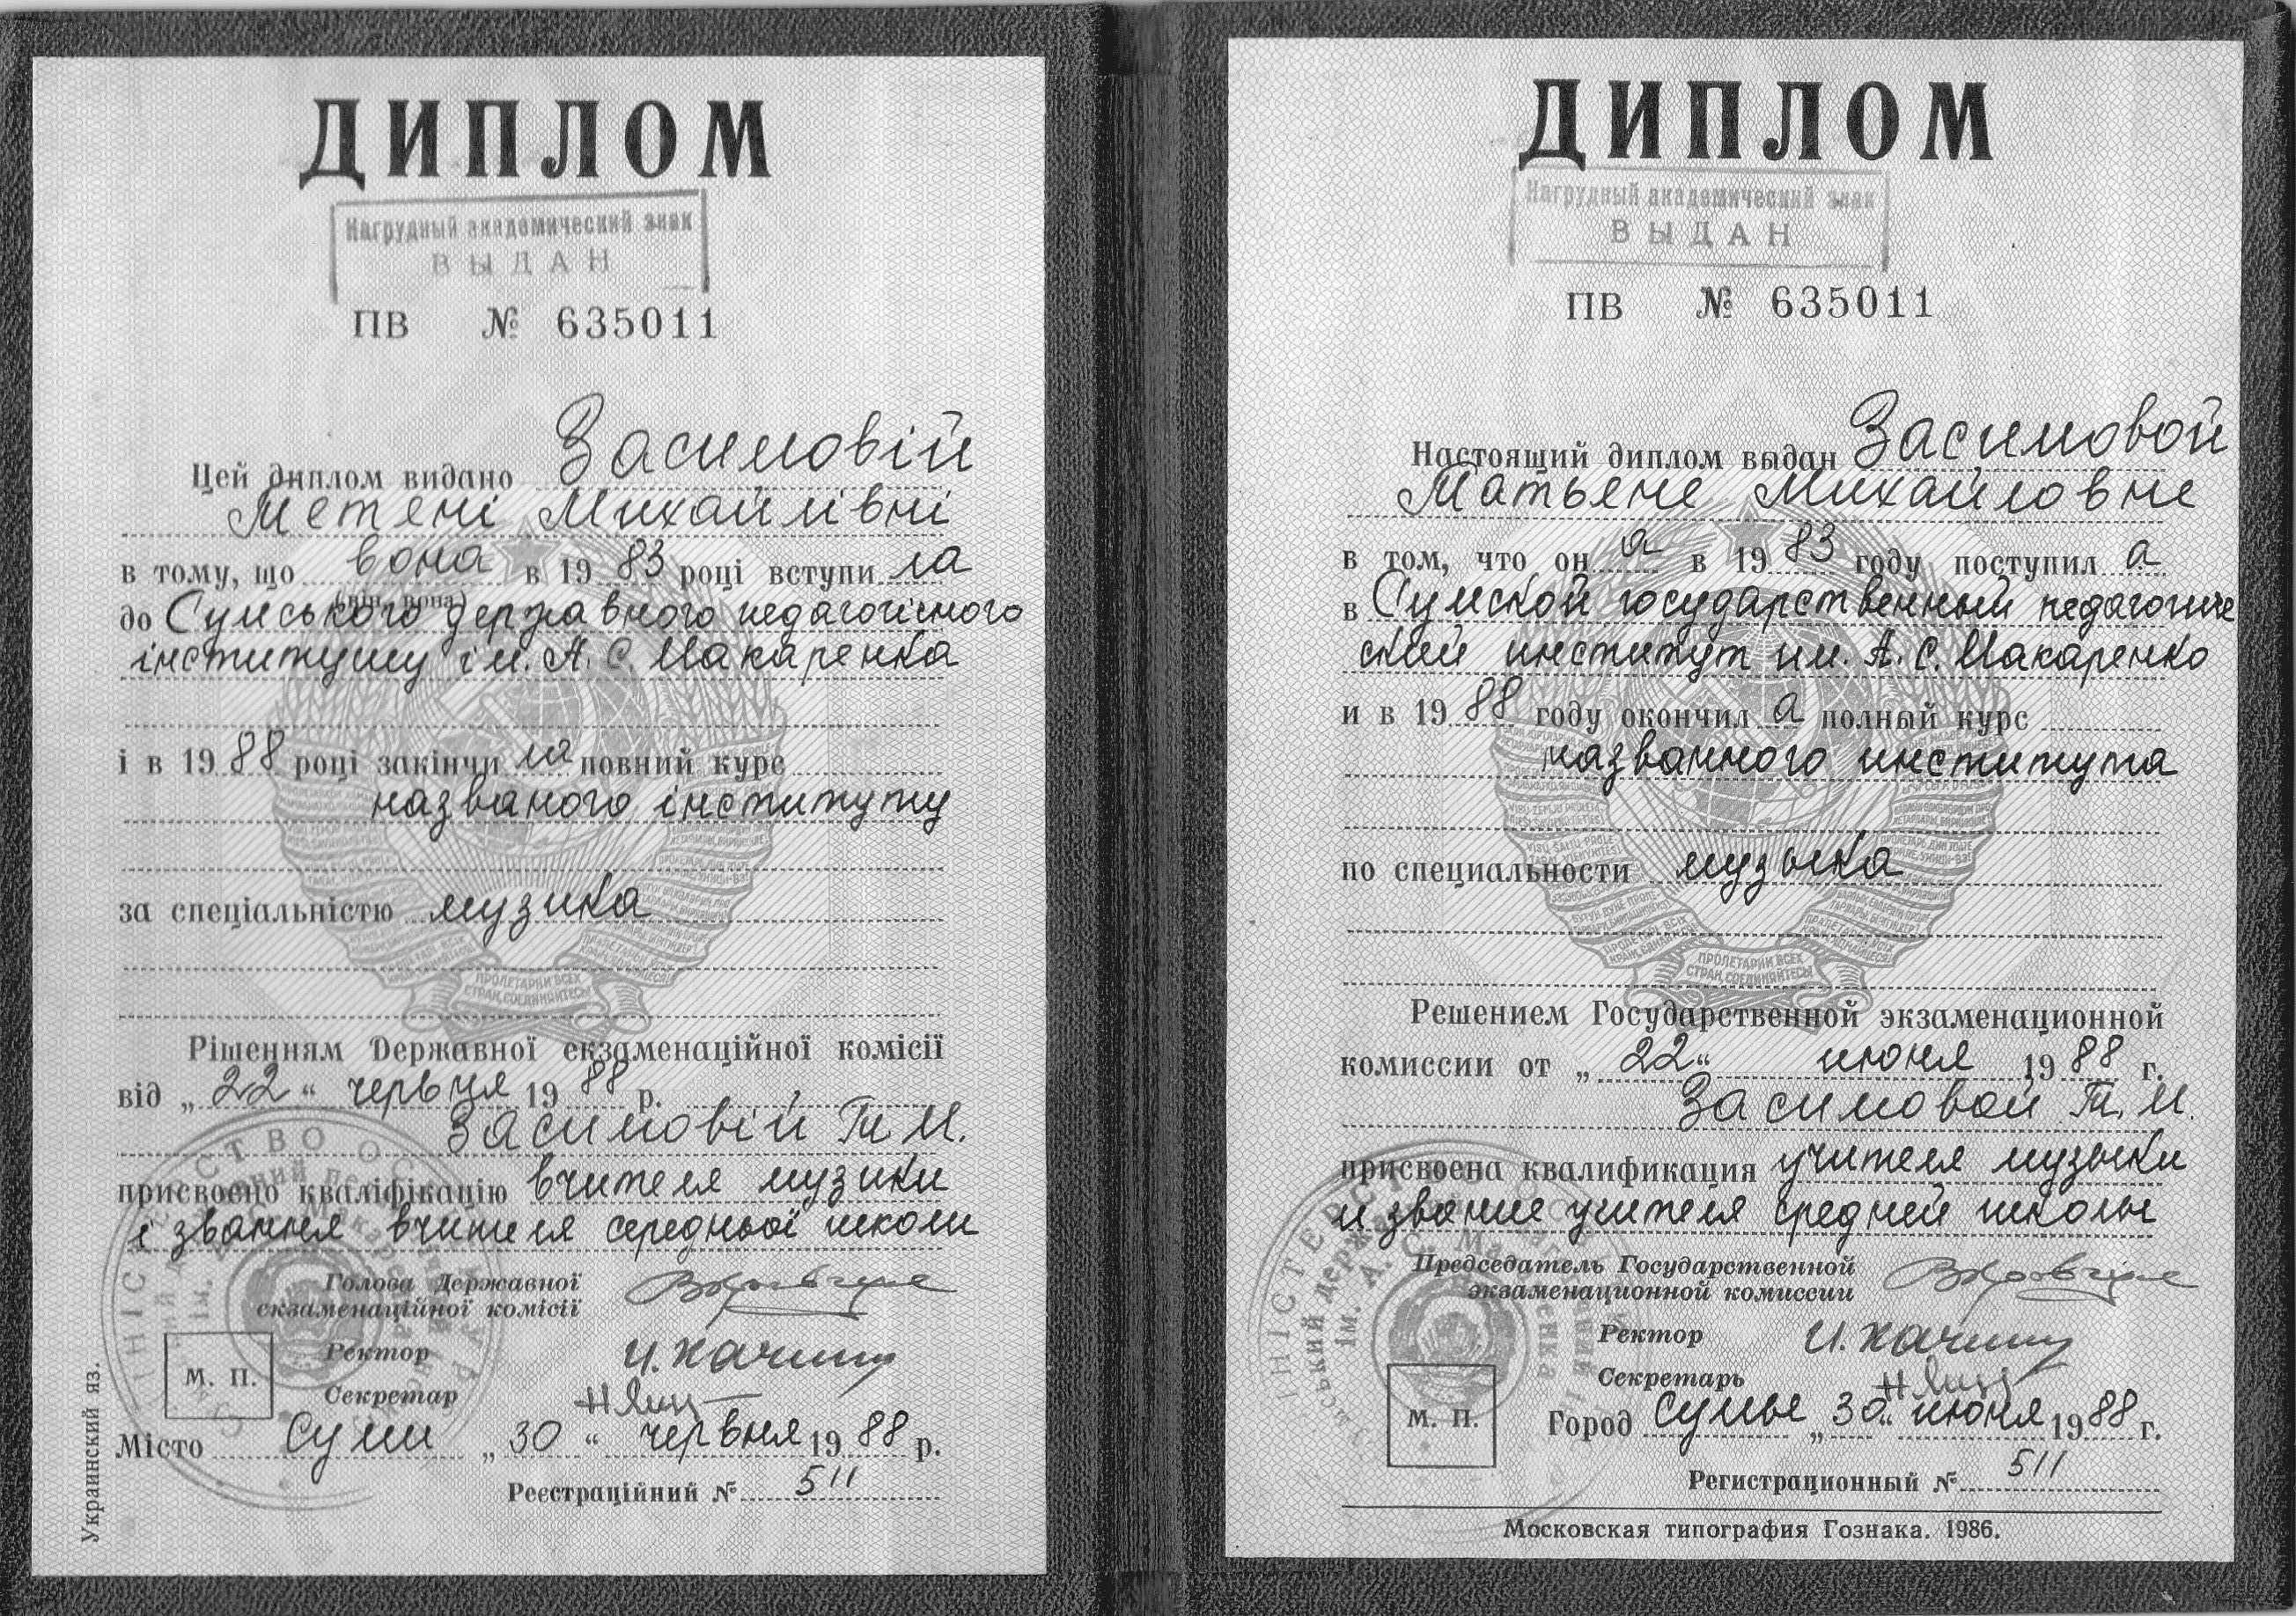 ДИПЛОМ
Нагрудный академический знак
ВЫДАН
ПВ № 635011
Цей диплом видано Засимовій
Тетяні Михайлівні
в тому, що вона в 19 83 році вступи ла
(він, вона)
до Сумського державного педагогічного
інституту ім. А. С. Макаренка
і в 19 88 році закінчи ла повний курс
названого інституту
за спеціальністю музика
Рішенням Державної екзаменаційної комісії
від „ 22 “ червня 19 88 р.
Засимовій Т. М.
присвоєно кваліфікацію вчителя музики
і звання вчителя середньої школи
Голова Державної
екзаменаційної комісії
Ректор
Секретар
М. П.
Місто Суми „ 30 “ червня 19 88 р.
Реєстраційний № 511
Украинский яз.
ДИПЛОМ
Нагрудный академический знак
ВЫДАН
ПВ № 635011
Настоящий диплом выдан Засимовой
Татьяне Михайловне
в том, что он а в 19 83 году поступил а
в Сумской государственный педагогиче
ский институт им. А. С. Макаренко
и в 19 88 году окончил а полный курс
названного института
по специальности музыка
Решением Государственной экзаменационной
комиссии от „ 22 “ июня 19 88 г.
Засимовой Т. М.
присвоена квалификация учителя музыки
и звание учителя средней школы
Председатель Государственной
экзаменационной комиссии
Ректор
Секретарь
М. П.
Город Сумы „ 30 “ июня 19 88 г.
Регистрационный № 511
Московская типография Гознака. 1986.
ПРОЛЕТАРИИ ВСЕХ
СТРАН, СОЕДИНЯЙТЕСЬ!